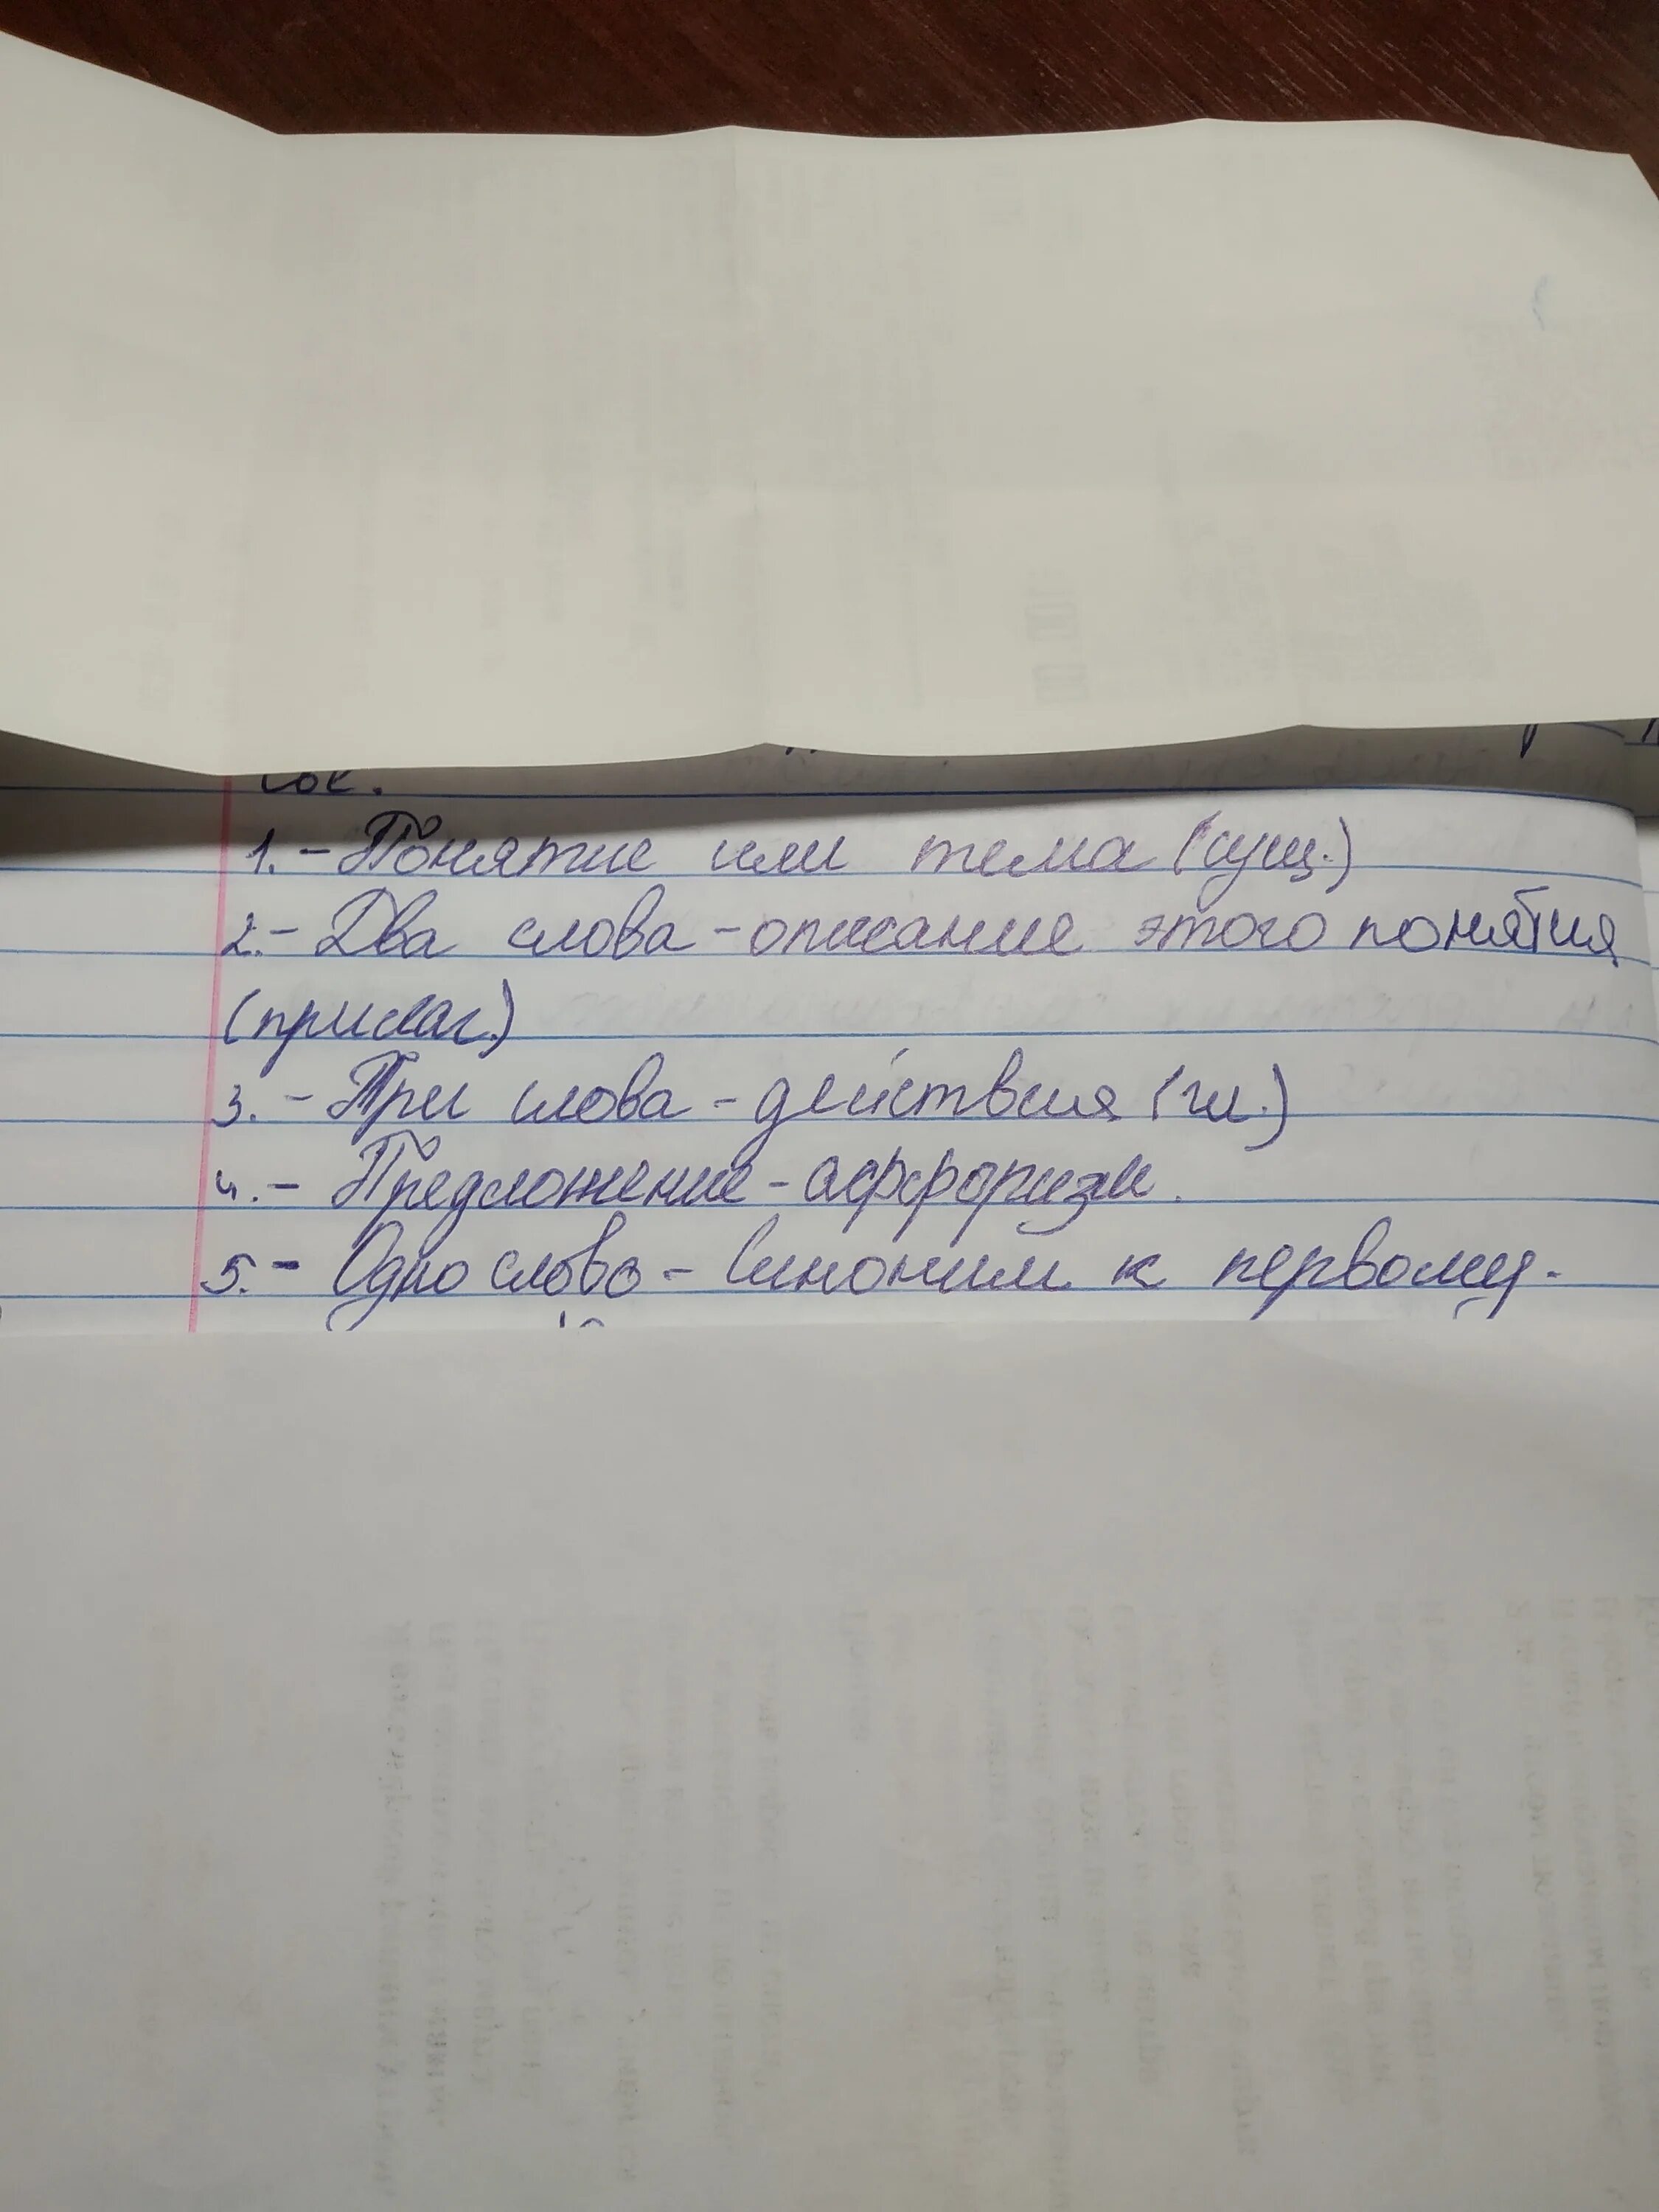 1. - Понятие или тема (сущ.)
2. - Два слова - описание этого понятия
(прилаг.)
3. - Три слова - действия (гл.)
4. - Предложение - аффоризм.
5. - Одно слово - Синоним к первому.